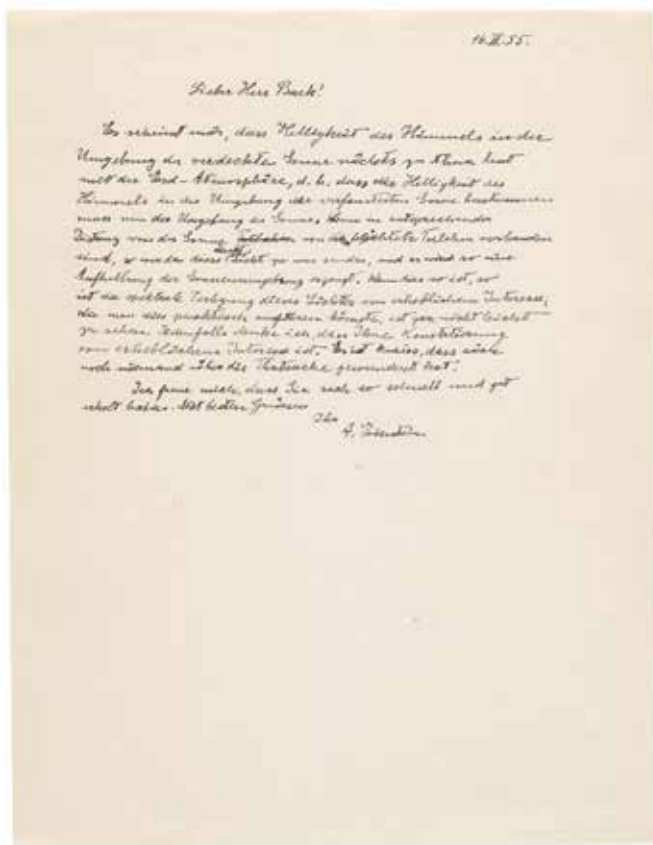 Lieber Herr Buck!
Es scheint mir, dass Helligkeit des Himmels in der
Umgebung der verdeckten Sonne nichts zu thun hat
mit der Erd-Atmosphäre, d. h. dass die Helligkeit des
Himmels in der Umgebung der Sonne
muss von der Umgebung der Sonne. Wenn in entsprechender
von der Sonne von der Teilchen vorhanden
sind, so werden diese Licht zu uns senden, und es wird so eine
Aufhellung der Sonnenumgebung erzeugt. Wenn dies so ist, so
ist die spektrale Zerlegung dieses Lichtes von erheblichem Interesse,
Wie man dies praktisch könnte, ist gar nicht leicht
zu sehen. Jedenfalls denke ich, dass Ihre Konstatierung
von erheblichem Interesse ist. Es ist kurios, dass sich
noch niemand über die Thatsache gewundert hat.
Ich freue mich, dass Sie sich so schnell und gut
erholt haben. Mit besten Grüssen
Ihr
A. Einstein